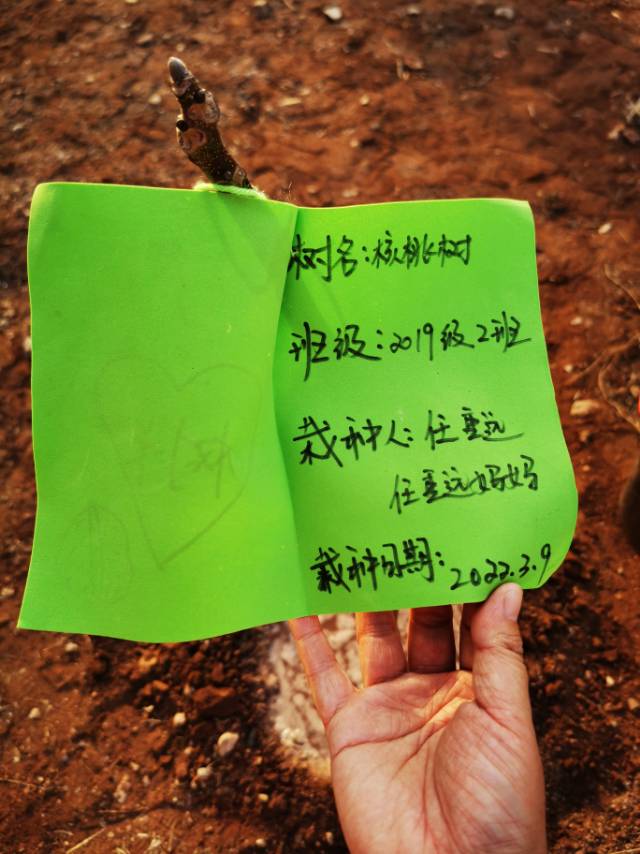 树名:核桃树
班级:2019级2班
栽种人:任重远
任重远妈妈
栽种日期:2022.3.9